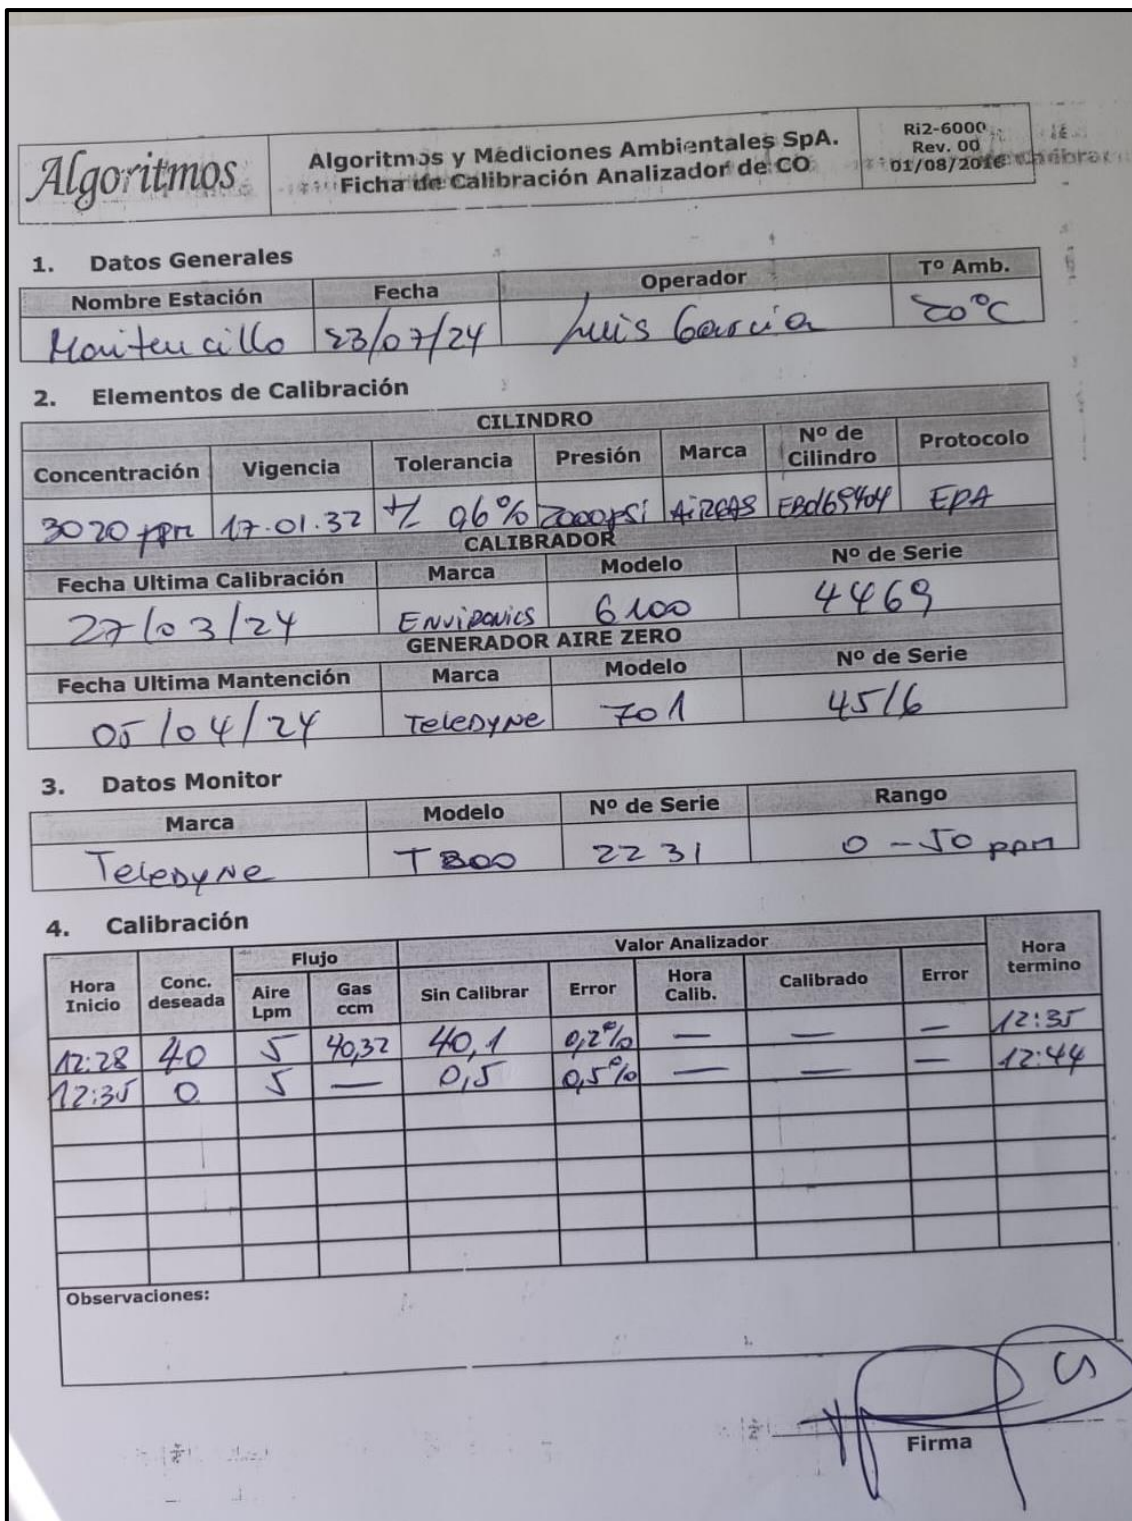 Algoritmos
Algoritmos y Mediciones Ambientales SpA.
Ficha de Calibración Analizador de CO
Ri2-6000
Rev. 00
01/08/2016
1. Datos Generales
Nombre Estación Fecha Operador Tº Amb.
Maitencillo 23/07/24 Luis García 20°C
2. Elementos de Calibración
CILINDRO
Concentración Vigencia Tolerancia Presión Marca Nº de Cilindro Protocolo
3020 ppm 17.01.32 +/- 0,6% 2000psi AIRGAS EB0169404 EPA
CALIBRADOR
Fecha Ultima Calibración Marca Modelo Nº de Serie
27/03/24 ENVIRONICS 6100 4469
GENERADOR AIRE ZERO
Fecha Ultima Mantención Marca Modelo Nº de Serie
05/04/24 TELEDYNE 701 4516
3. Datos Monitor
Marca Modelo Nº de Serie Rango
TELEDYNE T300 2231 0 - 50 ppm
4. Calibración
Hora Inicio Conc. deseada Flujo Aire Lpm Gas ccm Valor Analizador Sin Calibrar Error Hora Calib. Calibrado Error Hora termino
12:28 40 5 40,32 40,1 0,2% — — — 12:35
12:35 0 5 — 0,5 0,5% — — — 12:44
Observaciones:
Firma